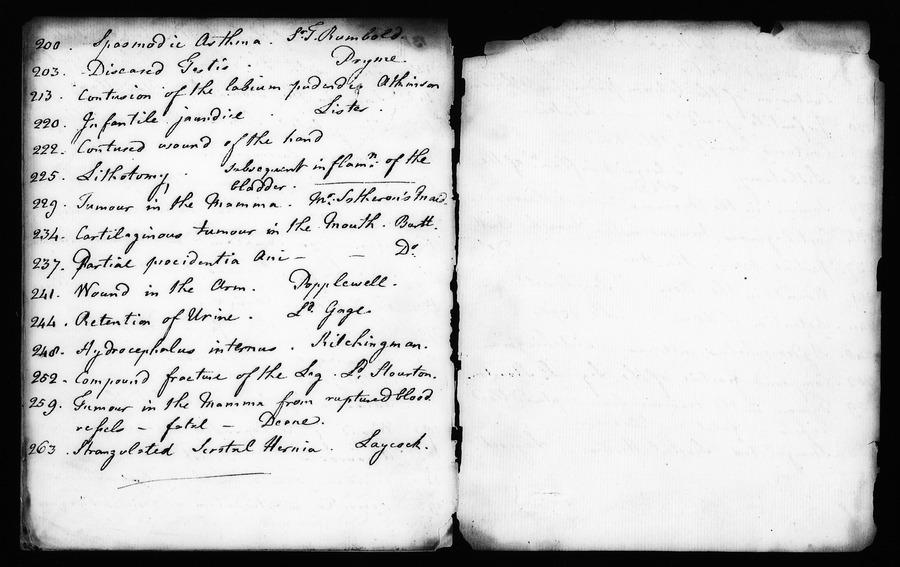 200. Spasmodic Asthma. Sr. T. Rumbold.
203. Diseased Testis. Pryme.
213. Contusion of the labium pudendi, Atkinson
220. Infantile jaundice. Lister.
222. Contused wound of the hand
225. Lithotomy. subsequent inflamn. of the
bladder.
229. Tumour in the Mamma. Mr. Sotheron's Maid.
234. Cartilaginous tumour in the Mouth. Burtt.
237. Partial procidentia Ani — — Do.
241. Wound in the Arm. Popplewell.
244. Retention of Urine. Ld. Gage
248. Hydrocephalus internus. Kilchingman.
252. Compound fracture of the Leg. Ld. Stourton.
259. Tumour in the Mamma from ruptured blood
vessels — fatal — Deane.
263. Strangulated Scrotal Hernia. Laycock.